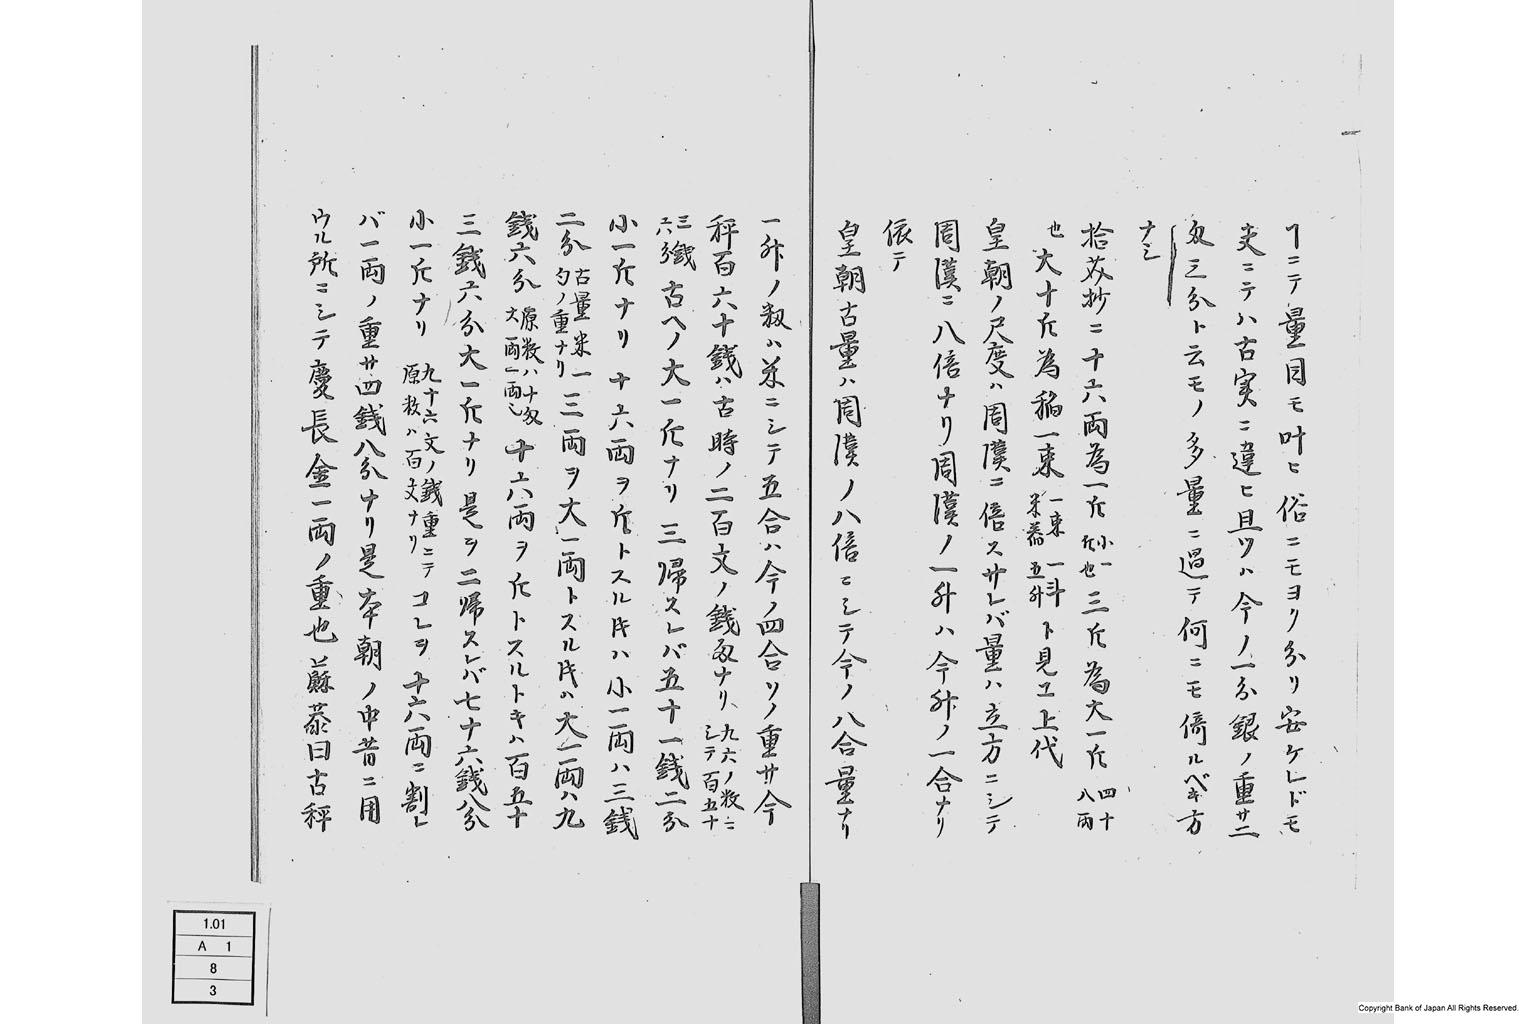 ヿニテ量目モ叶ヒ俗ニモヨク分リ安ケレドモ
夫ニテハ古実ニ違ヒ且ツハ今ノ一分銀ノ重サ二
匁三分ト云モノ多量ニ過テ何ニモ倚ルベキ方
ナシ
拾芥抄ニ十六両為一斤小一斤也三斤為大一斤四十八両
也大十斤為稲一束一束米一斗春五升ト見ヱ上代
皇朝ノ尺度ハ周漢ニ倍スサレバ量ハ立方ニシテ
周漢ニ八倍ナリ周漢ノ一升ハ今升ノ一合ナリ
依テ
皇朝古量ハ周漢ノ八倍ニシテ今ノ八合量ナリ
一升ノ籾ハ米ニシテ五合ハ今ノ四合ソノ重サ今
秤百六十銭ハ古時ノ二百文ノ銭匁ナリ、九六ノ数ニシテ百五十
三銭六分古ヘノ大一斤ナリ三帰スレバ五十一銭二分
小一斤ナリ十六両ヲ斤トスル時ハ小一両ハ三銭
二分古量米一勺ノ重ナリ三両ヲ大一両トスル時ハ大一両ハ九
銭六分原数ハ十匁大両一両也十六両ヲ斤トスルトキハ百五十
三銭六分大一斤ナリ是ヲ二帰スレバ七十六銭八分
小一斤ナリ九十六文ノ銭重ニテ原数ハ百文ナリコレヲ十六両ニ割レ
バ一両ノ重サ四銭八分ナリ是本朝ノ中昔ニ用
ウル所ニシテ慶長金一両ノ重也蘇恭曰古秤
1.01
A 1
8
3
Copyright Bank of Japan All Rights Reserved.